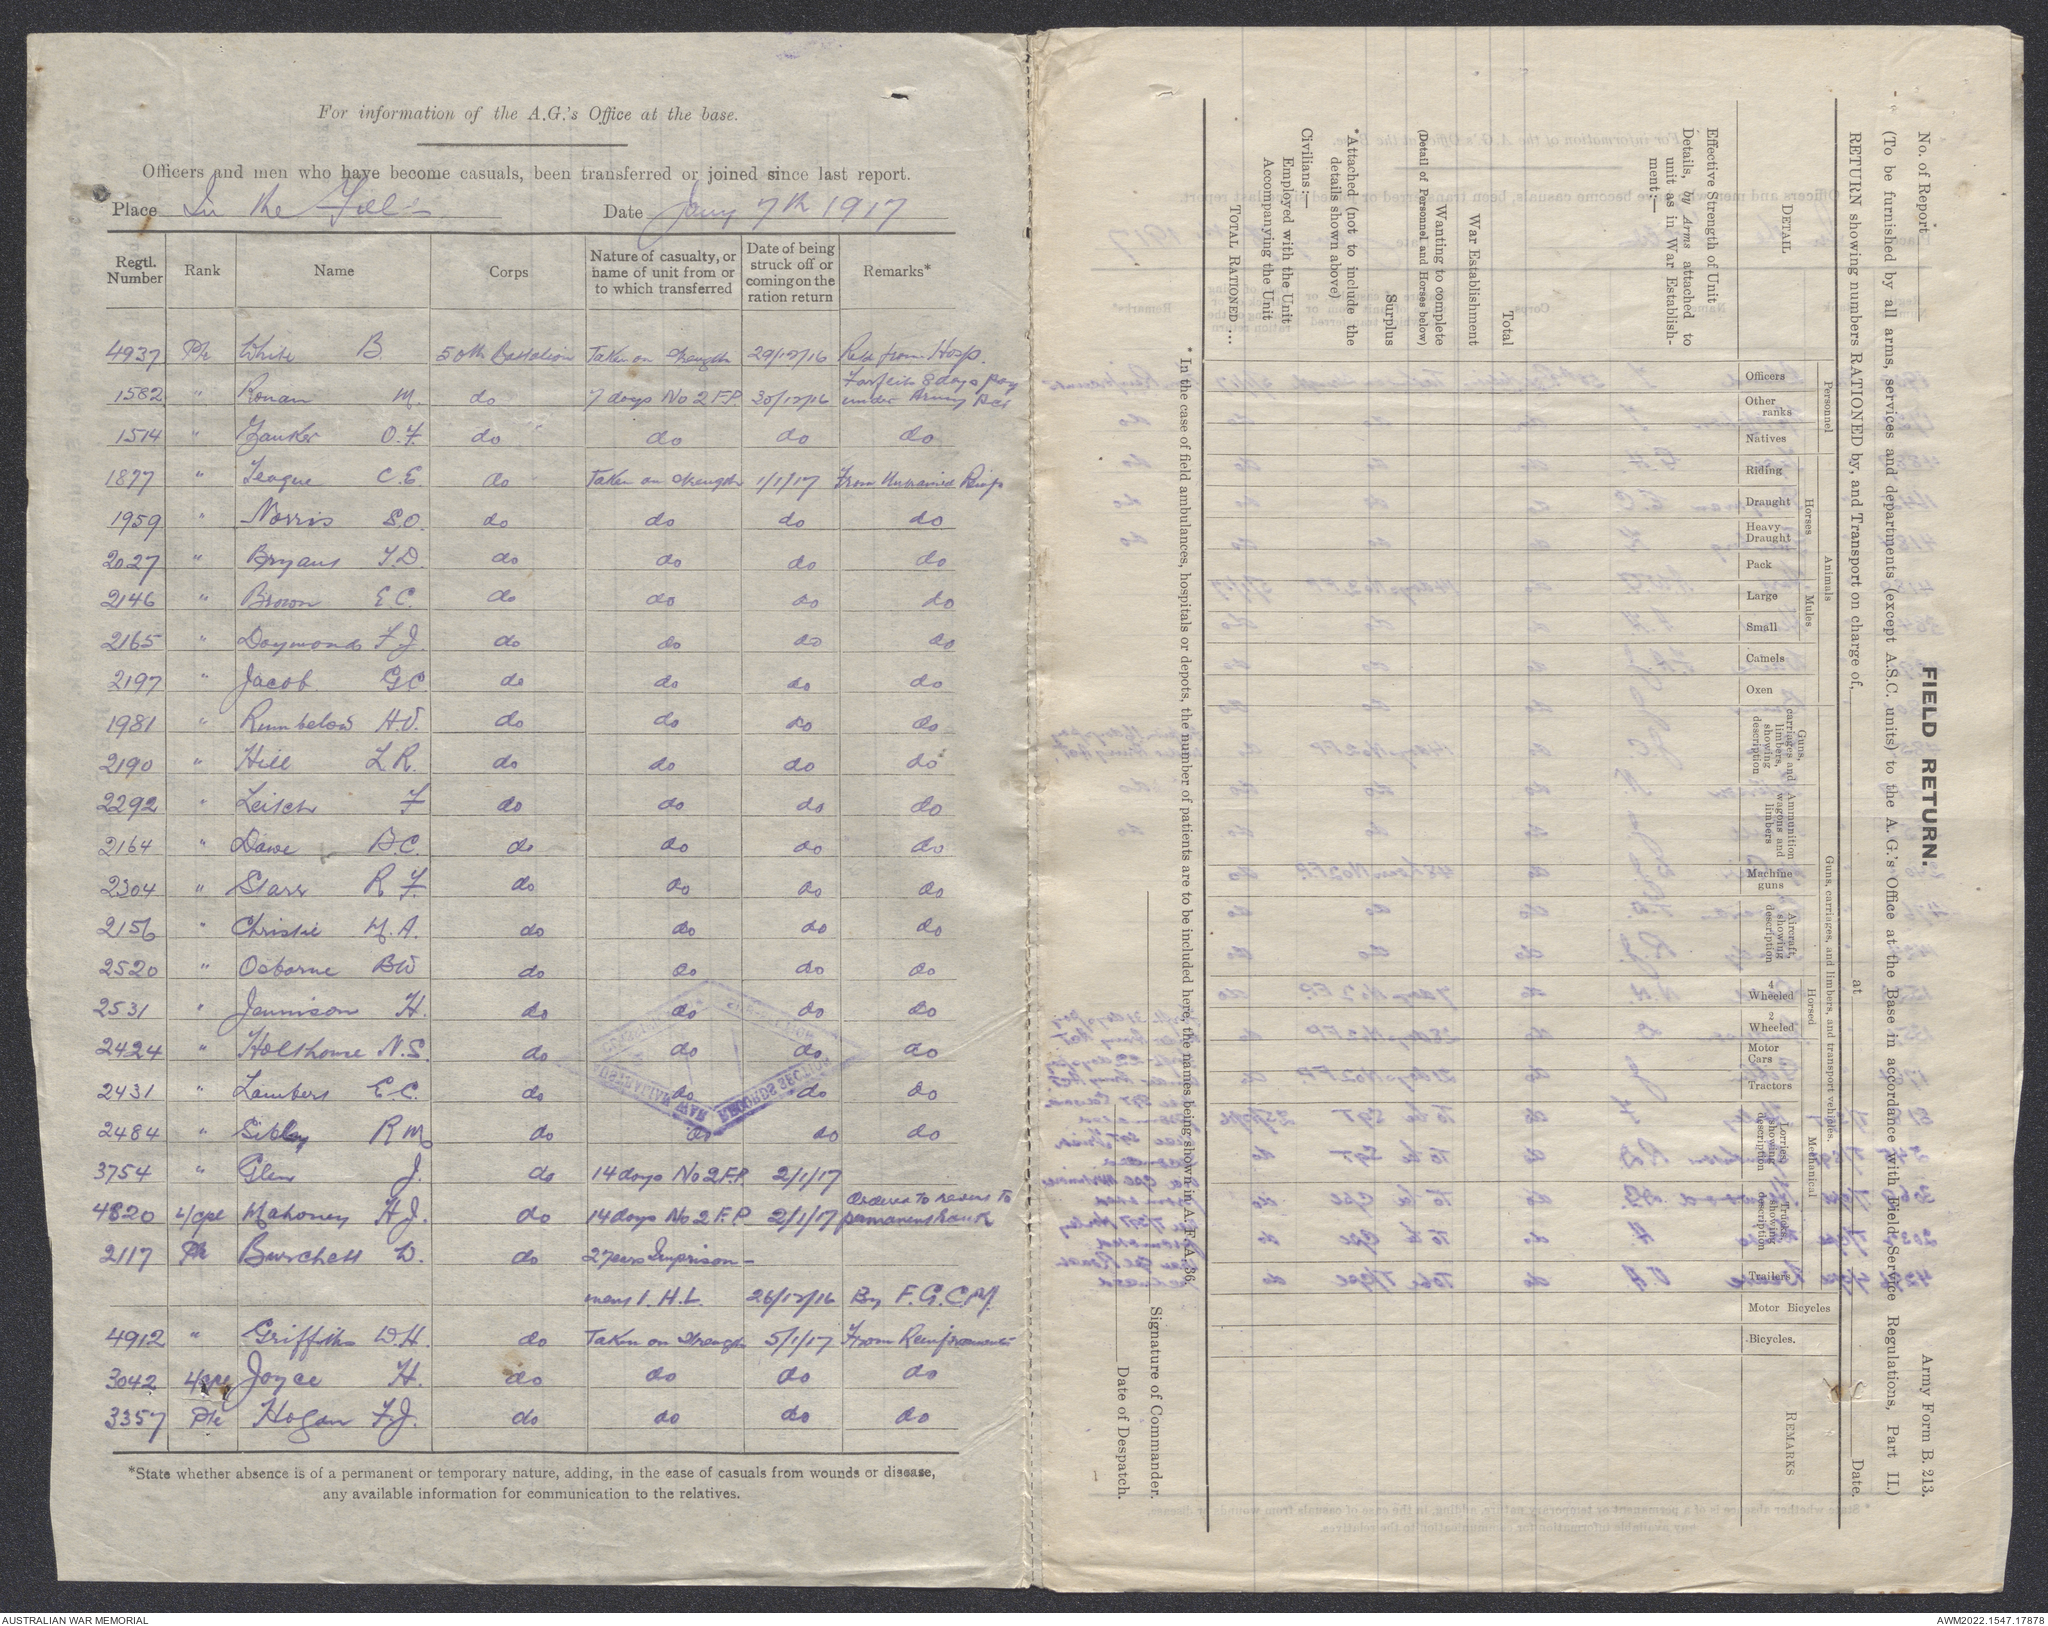 For information of the A.G.'s Office at the base.
Officers and men who have become casuals, been transferred or joined since last report.
Place In the Field Date Jany 7th 1917
Regtl. Number Rank Name Corps Nature of casualty, or name of unit from or to which transferred Date of being struck off or coming on the ration return Remarks*
4937 Pte White B. 50th Battalion Taken on Strength 29/12/16 Retd from Hosp.
1582 " Ronan M. do 7 days No 2 F.P. 30/12/16 Forfeits 8 days pay under Army Act
1514 " Zanker O.F. do do do do
1877 " Teague C.E. do Taken on Strength 1/1/17 From Untrained Reinfs
1959 " Norris S.O. do do do do
2027 " Bryans T.D. do do do do
2146 " Brown E.C. do do do do
2165 " Daymond F.J. do do do do
2197 " Jacob G.C. do do do do
1981 " Rumbelow H.V. do do do do
2190 " Hill L.R. do do do do
2292 " Leitch F do do do do
2164 " Dawe B.C. do do do do
2304 " Starr R F. do do do do
2156 " Christie M.A. do do do do
2520 " Osborne BW do do do do
2531 " Jennison H. do do do do
2424 " Holthouse N.S. do do do do
2431 " Lambert E.C. do do do do
2484 " Sibley R M do do do do
3754 " Glen J. do 14 days No 2 F.P. 2/1/17
4820 L/Cpl Mahoney H J. do 14 days No 2 F.P 2/1/17 Ordered to revert to permanent Rank
2117 Pte Burchell W. do 2 years Imprison-
ment I.H.L. 26/12/16 By F.G.C.M.
4912 " Griffiths W.H. do Taken on Strength 5/1/17 From Reinforcements
3042 L/Cpl Joyce H. do do do do
3357 Pte Hogan F.J. do do do do
*State whether absence is of a permanent or temporary nature, adding, in the case of casuals from wounds or disease,
any available information for communication to the relatives.
AUSTRALIAN WAR RECORDS SECTION
No. of Report
FIELD RETURN.
Army Form B. 213.
(To be furnished by all arms, services and departments (except A.S.C. units) to the A. G.'s Office at the Base in accordance with Field Service Regulations, Part II.)
RETURN showing numbers RATIONED by, and Transport on charge of, at Date.
DETAIL
Personnel
Officers
Other ranks
Natives
Animals
Horses
Riding
Draught
Heavy Draught
Pack
Mules
Large
Small
Camels
Oxen
Guns, carriages, and limbers, and transport vehicles.
Guns, carriages and limbers, showing description
Ammunition wagons and limbers
Machine guns
Aircraft, showing description
Horsed
4 Wheeled
2 Wheeled
Mechanical
Motor Cars
Tractors
Lorries, showing description
Trucks, showing description
Trailers
Motor Bicycles
Bicycles.
REMARKS
Effective Strength of Unit
Details, by Arms attached to unit as in War Establishment:—
Total
War Establishment
Wanting to complete
(Detail of Personnel and Horses below)
Surplus
*Attached (not to include the details shown above)
Civilians:—
Employed with the Unit
Accompanying the Unit
TOTAL RATIONED ...
* In the case of field ambulances, hospitals or depots, the number of patients are to be included here, the names being shown in A. F. A. 36.
Signature of Commander.
Date of Despatch.
AUSTRALIAN WAR MEMORIAL
AWM2022.1547.17878